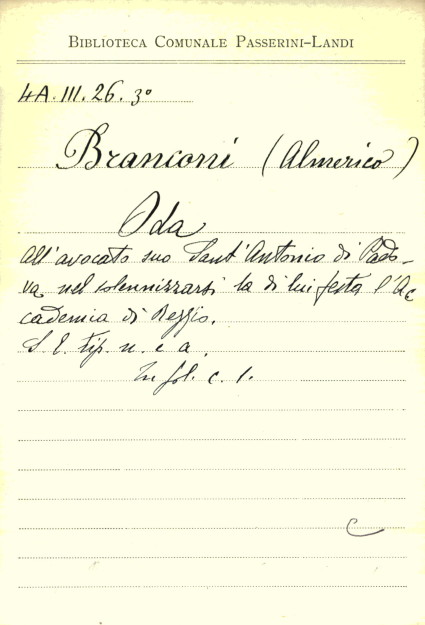 BIBLIOTECA COMUNALE PASSERINI-LANDI
4A. III. 26. 3°
Branconi (Almerico)
Oda
all'avocato suo Sant'Antonio di Pado-
va, nel solennizzarsi la di lui festa l'Ac
cademia di Reggio.
S. E. tip. n. e a.
In fol. c. 1.
C